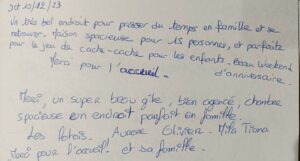 Oct 10/12/23
Un très bel endroit pour passer du temps en famille et se
retrouver. Maison spacieuse pour 15 personnes, et parfaite
pour le jeu de cache-cache pour les enfants. Beau weekend
Merci pour l'accueil. d'anniversaire.
Merci, un super beau gîte, bien agencé, chambre
spacieuse un endroit parfait en famille.
Les Aurore Olivier. Mila Tiana
Merci pour l'accueil! et sa famille.